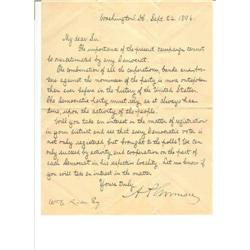 Washington, D.C. Sept. 22, 1896.
My dear Sir.
The importance of the present campaign cannot
be overestimated by any Democrat.
The combination of all the corporations, banks
against the nominees of the party is more outspoken
than ever before in the history of the United States.
The Democratic party must rely, as it always has
done, upon the activity of the people.
Will you take an interest in the matter of registration
in your district and see that every Democratic voter is
not only registered, but brought to the polls? We can
only succeed by activity and cooperation on the part of
each Democrat in his respective locality. Let me know if
you will take an interest in the matter.
Yours truly,